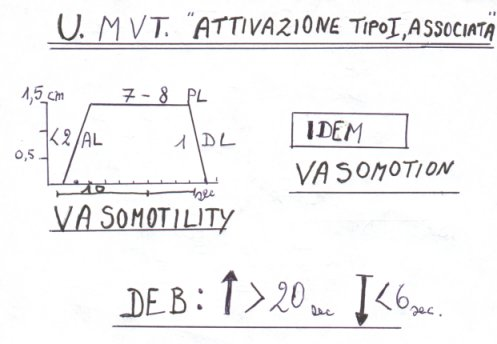 U. MVT. "ATTIVAZIONE TIPO I, ASSOCIATA"
1,5 cm
7 - 8 PL
<2 AL
1 DL
0,5
10
sec
VASOMOTILITY
IDEM
VASOMOTION
DEB: ↑ > 20 sec ↓ < 6 sec.